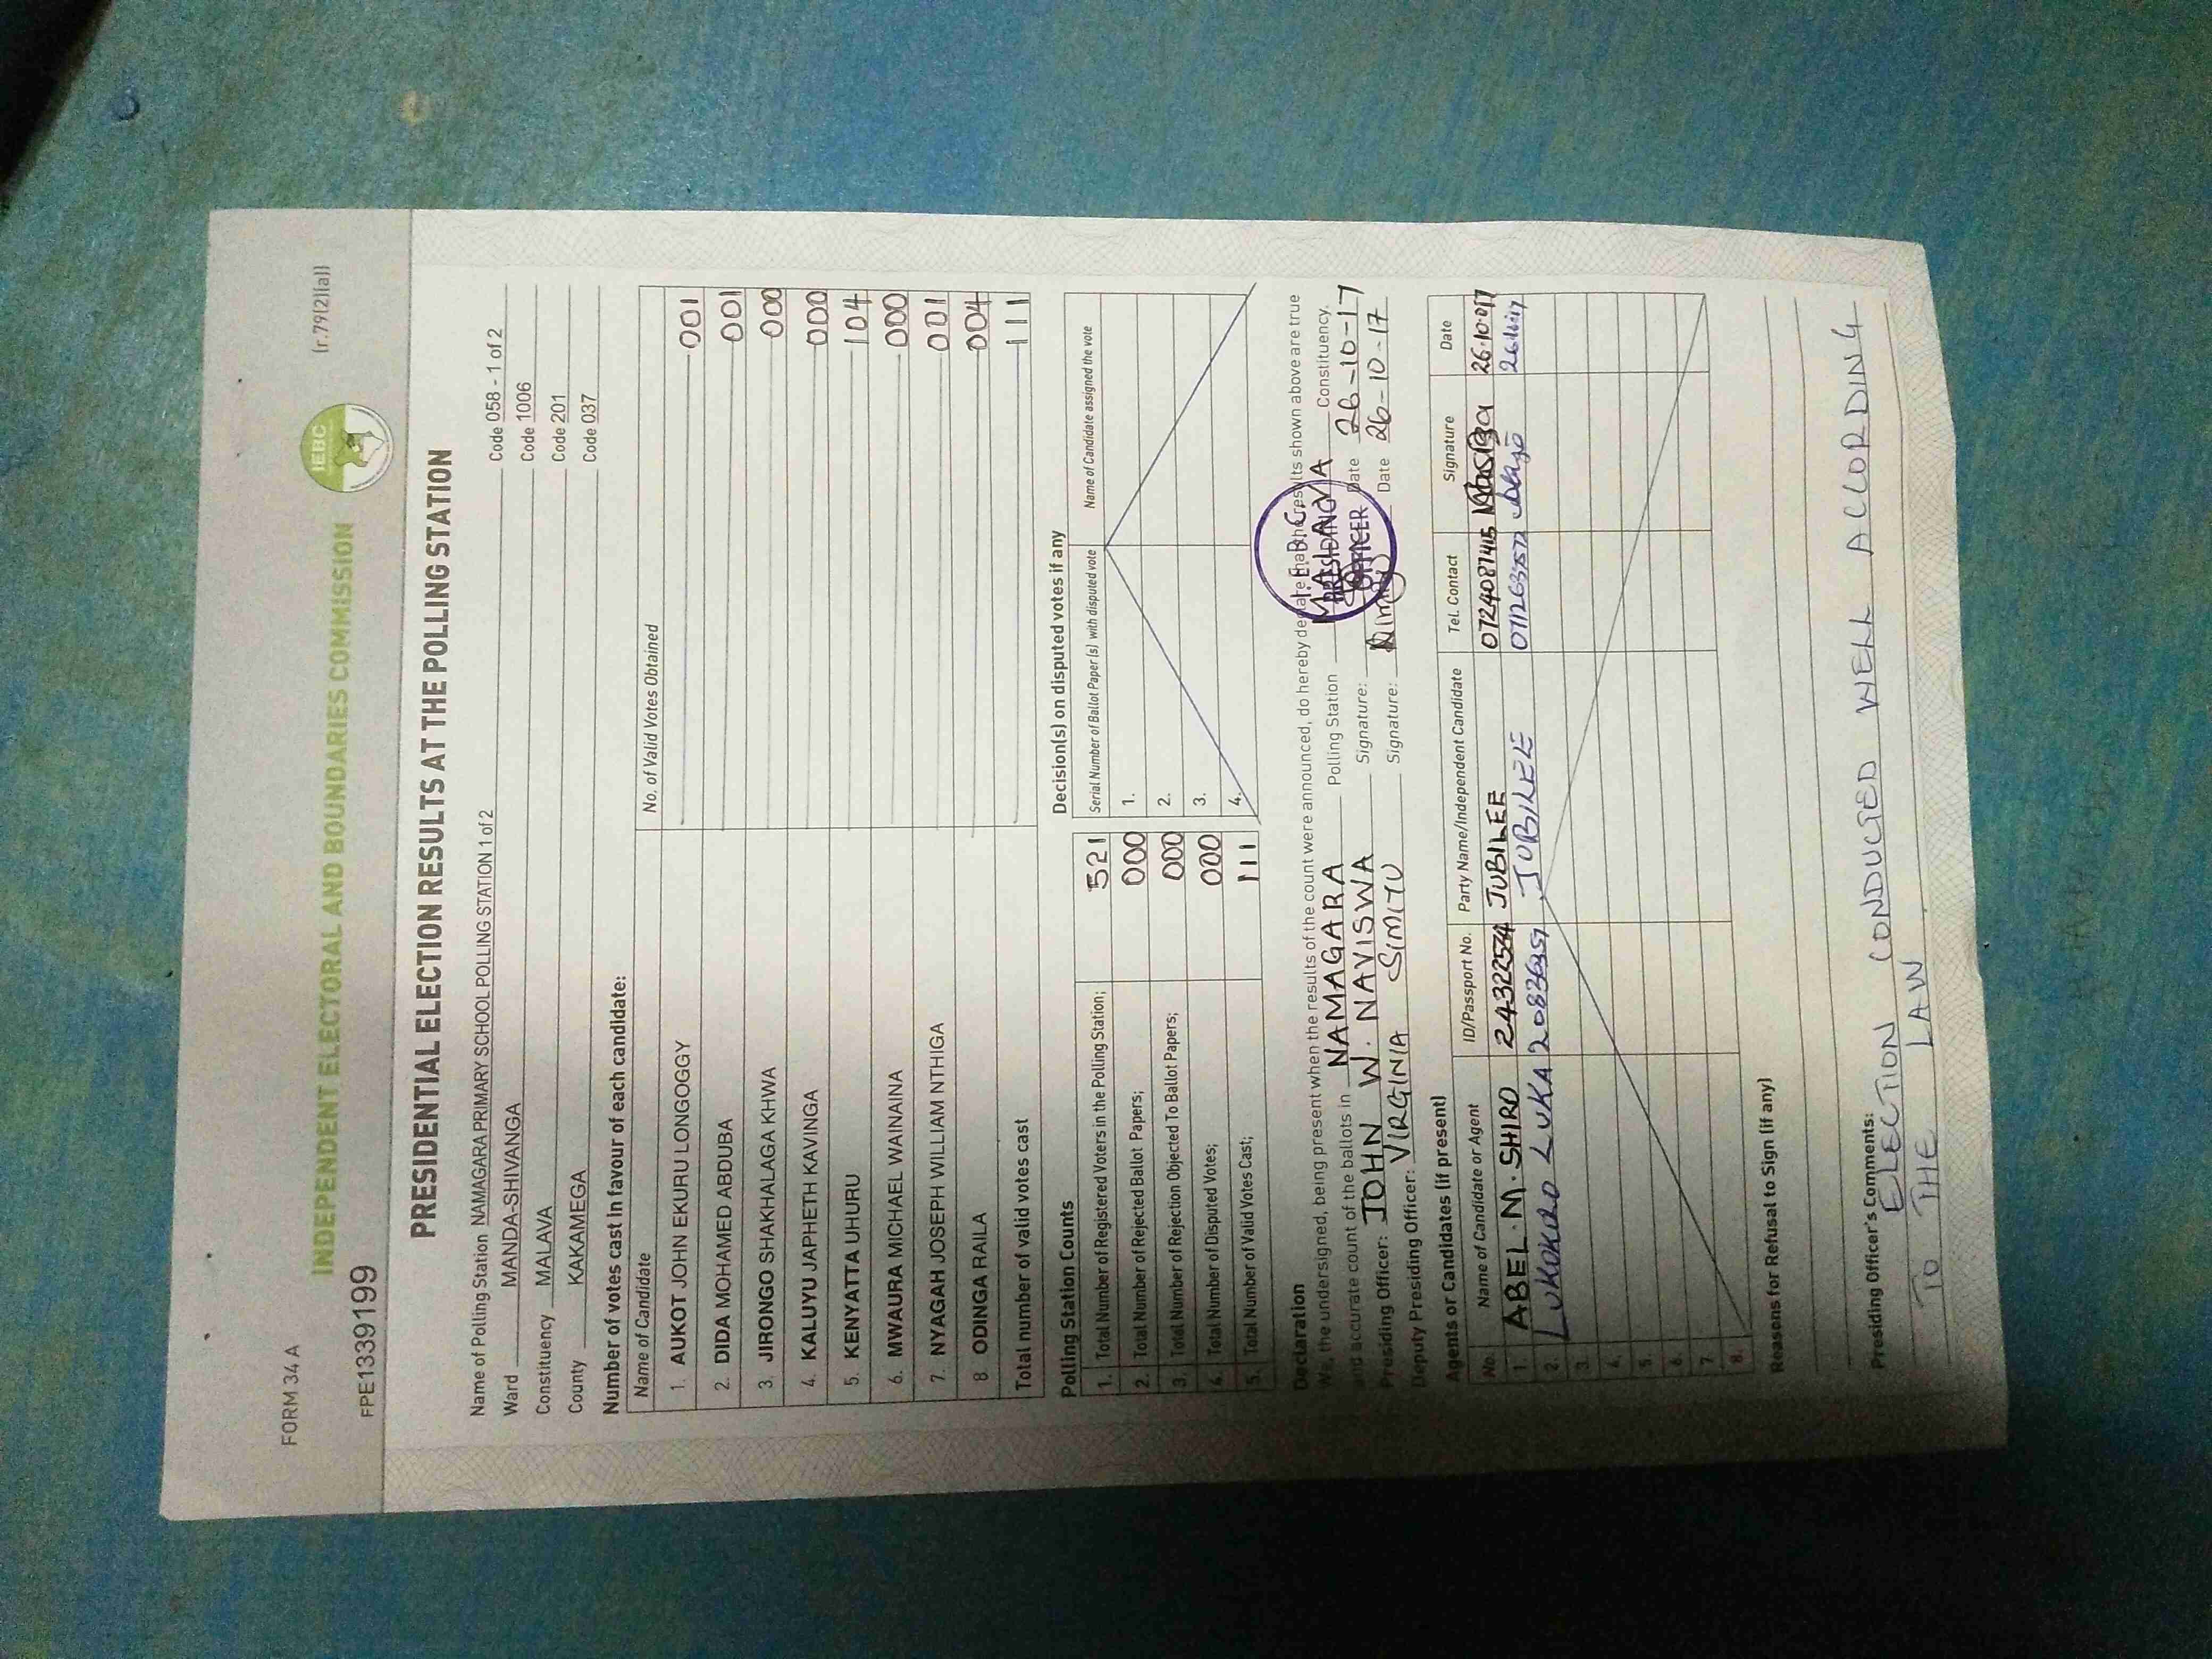 FORM 34 A
INDEPENDENT ELECTORAL AND BOUNDARIES COMMISSION
IEBC
(r.79(2)(a))
FPE1339199
PRESIDENTIAL ELECTION RESULTS AT THE POLLING STATION
Name of Polling Station NAMAGARA PRIMARY SCHOOL POLLING STATION 1 of 2 Code 058 - 1 of 2
Ward MANDA-SHIVANGA Code 1006
Constituency MALAVA Code 201
County KAKAMEGA Code 037
Number of votes cast in favour of each candidate:
Name of Candidate No. of Valid Votes Obtained
1. AUKOT JOHN EKURU LONGOGGY 001
2. DIDA MOHAMED ABDUBA 001
3. JIRONGO SHAKHALAGA KHWA 000
4. KALUYU JAPHETH KAVINGA 000
5. KENYATTA UHURU 104
6. MWAURA MICHAEL WAINAINA 000
7. NYAGAH JOSEPH WILLIAM NTHIGA 001
8. ODINGA RAILA 004
Total number of valid votes cast 111
Polling Station Counts
1. Total Number of Registered Voters in the Polling Station; 521
2. Total Number of Rejected Ballot Papers; 000
3. Total Number of Rejection Objected To Ballot Papers; 000
4. Total Number of Disputed Votes; 000
5. Total Number of Valid Votes Cast; 111
Decision(s) on disputed votes if any
Serial Number of Ballot Paper(s) with disputed vote Name of Candidate assigned the vote
1.
2.
3.
4.
Declaration
We, the undersigned, being present when the results of the count were announced, do hereby declare that the results shown above are true
and accurate count of the ballots in NAMAGARA Polling Station MALAVA Constituency.
Presiding Officer: JOHN W. NAVISWA Signature: Date 26-10-17
Deputy Presiding Officer: VIRGINIA SIMIYU Signature: Date 26-10-17
I.E.B.C.
PRESIDING
OFFICER
Agents or Candidates (if present)
No. Name of Candidate or Agent ID/Passport No. Party Name/Independent Candidate Tel. Contact Signature Date
1. ABEL.M.SHIRO 24322574 JUBILEE 0724087415 26.10.017
2. LUKOKRO LUKA 20836359 JUBILEE
3.
4.
5.
6.
7.
8.
Reasons for Refusal to Sign (if any)
Presiding Officer's Comments:
ELECTION CONDUCTED WELL ACCORDING
TO THE LAW.